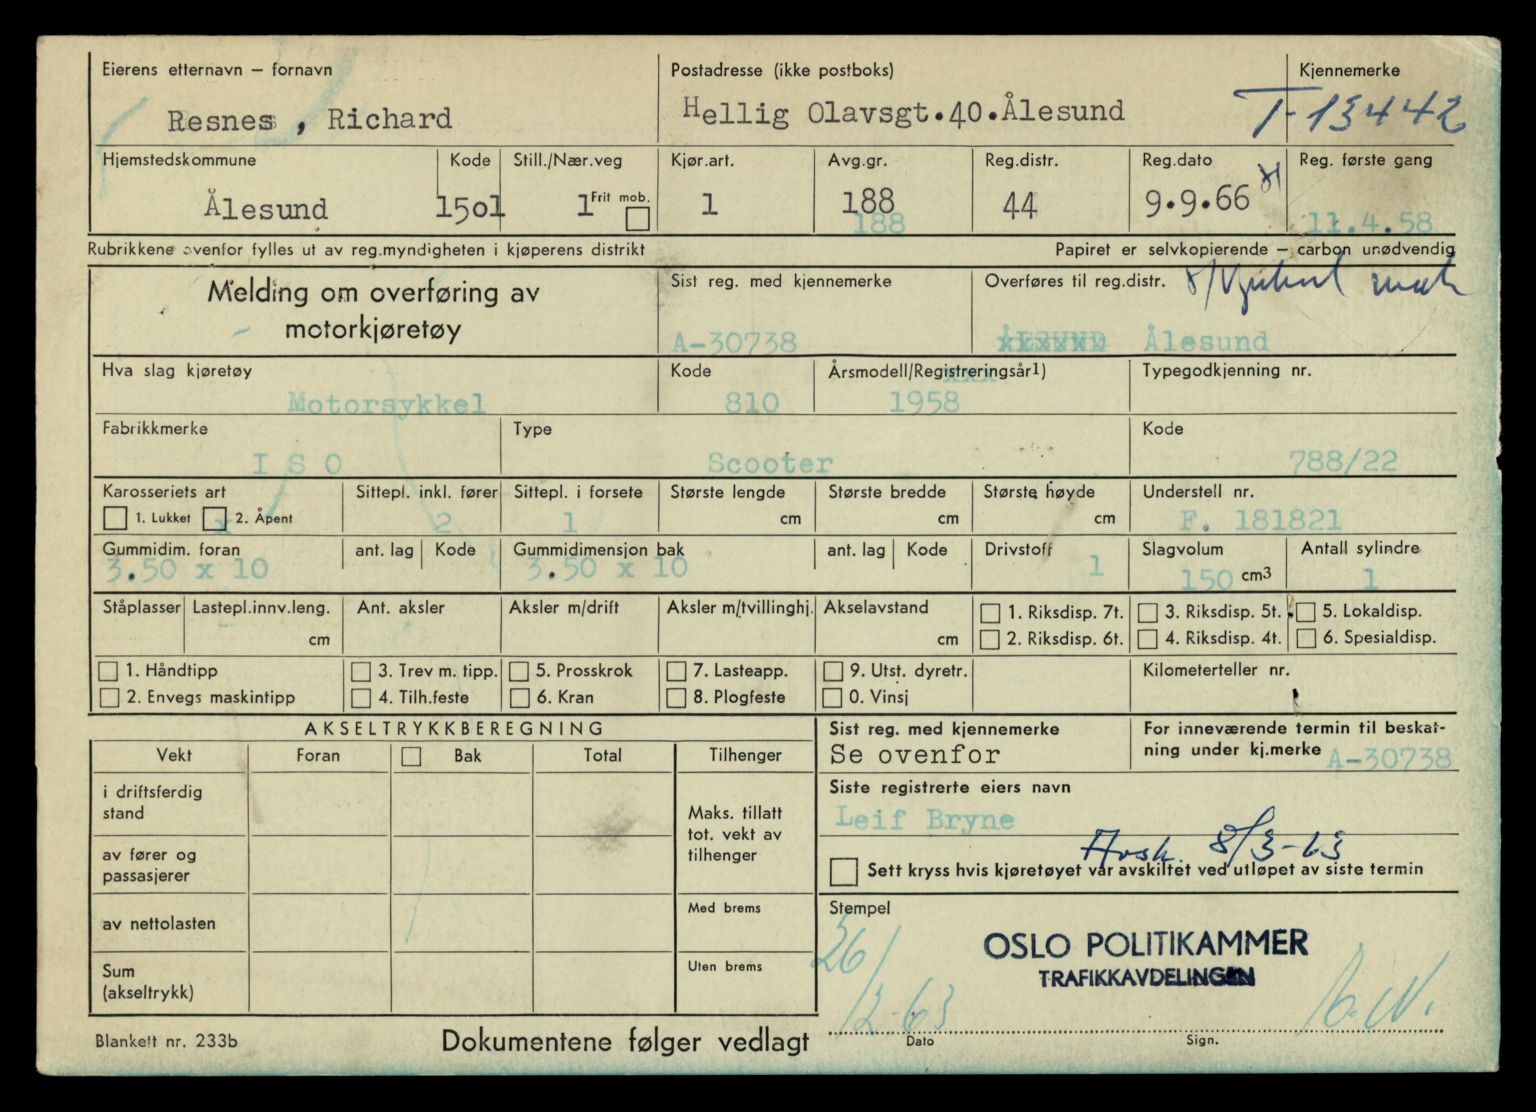 Eierens etternavn – fornavn
Resnes , Richard
Postadresse (ikke postboks)
Hellig Olavsgt.40.Ålesund
Kjennemerke
T-13442
Hjemstedskommune
Ålesund
Kode
1501
Still./Nær.veg
1 Frit mob.
Kjør.art.
1
Avg.gr.
188
188
Reg.distr.
44
Reg.dato
9.9.66
Reg. første gang
11.4.58
Rubrikkene ovenfor fylles ut av reg.myndigheten i kjøperens distrikt
Papiret er selvkopierende – carbon unødvendig
Melding om overføring av
motorkjøretøy
Sist reg. med kjennemerke
A-30738
Overføres til reg.distr.
Ålesund
Hva slag kjøretøy
Motorsykkel
Kode
810
Årsmodell/Registreringsår1)
xxx
1958
Typegodkjenning nr.
Fabrikkmerke
I S O
Type
Scooter
Kode
788/22
Karosseriets art
1. Lukket x 2. Åpent
Sittepl. inkl. fører
2
Sittepl. i forsete
1
Største lengde
cm
Største bredde
cm
Største høyde
cm
Understell nr.
F. 181821
Gummidim. foran
3.50 x 10
ant. lag
Kode
Gummidimensjon bak
3.50 x 10
ant. lag
Kode
Drivstoff
1
Slagvolum
150 cm3
Antall sylindre
1
Ståplasser
Lastepl.innv.leng.
cm
Ant. aksler
Aksler m/drift
Aksler m/tvillinghj.
Akselavstand
cm
1. Riksdisp. 7t.
2. Riksdisp. 6t.
3. Riksdisp. 5t.
4. Riksdisp. 4t.
5. Lokaldisp.
6. Spesialdisp.
1. Håndtipp
2. Envegs maskintipp
3. Trev m. tipp.
4. Tilh.feste
5. Prosskrok
6. Kran
7. Lasteapp.
8. Plogfeste
9. Utst. dyretr.
0. Vinsj
Kilometerteller nr.
AKSELTRYKKBEREGNING
Vekt
Foran
Bak
Total
Tilhenger
i driftsferdig
stand
av fører og
passasjerer
av nettolasten
Sum
(akseltrykk)
Maks. tillatt
tot. vekt av
tilhenger
Med brems
Uten brems
Sist reg. med kjennemerke
Se ovenfor
For inneværende termin til beskat-
ning under kj.merke A-30738
Siste registrerte eiers navn
Leif Bryne
Avsk. 8/3-63
Sett kryss hvis kjøretøyet var avskiltet ved utløpet av siste termin
Stempel
OSLO POLITIKAMMER
TRAFIKKAVDELINGEN
26/
12-63
Dato
Sign.
Blankett nr. 233b
Dokumentene følger vedlagt